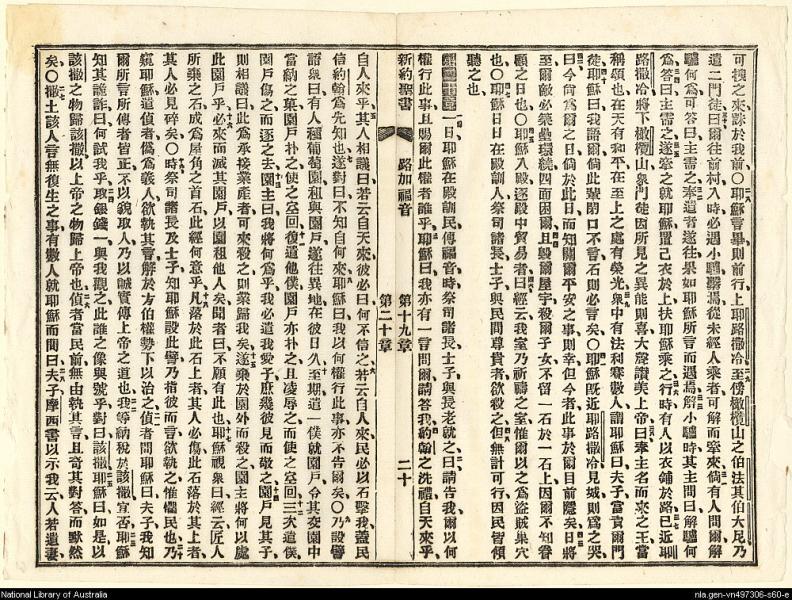 可拽之來誅於我前○耶穌言畢則前行上耶路撒冷至傍橄欖山之伯法其伯大尼乃
遣二門徒曰爾往前村入時必遇小驢繫焉從未經人乘者可解而牽來倘有人問爾解
驢何為可答曰主需之奉遣者遂往果如耶穌所言而遇焉解小驢時其主問曰解驢何
為答曰主需之遂牽之就耶穌置己衣於上扶耶穌乘之行時有人以衣鋪於路已近耶
路撒冷將下橄欖山眾門徒因所見之異能則喜大聲讚美上帝曰奉主名而來之王當
稱頌也在天有和平在至上之處有榮光眾中有法利賽數人謂耶穌曰夫子當責爾門
徒耶穌曰我語爾倘此輩閉口不言石則必言矣○耶穌既近耶路撒冷見城則為之哭
曰今尚為爾之日倘於此日而知關爾平安之事則幸但今者此事於爾目前隱矣日將
至爾敵必築壘環繞四面而困爾且毀爾屋宇殺爾子女不留一石於一石上因爾不知眷
顧之日也○耶穌入殿逐殿中貿易者曰經云我室乃祈禱之室惟爾以之為盜賊巢穴
也○耶穌日日在殿訓人祭司諸長士子與民間尊貴者欲殺之但無計可行因民皆傾
聽之也
一日耶穌在殿訓民傳福音時祭司諸長士子與長老就之曰請告我爾以何
權行此事且賜爾此權者誰乎耶穌曰我亦有一言問爾請答我約翰之洗禮自天來乎
新約聖書 路加福音 第十九章 第二十章 二十
自人來乎其人相議曰若云自天來彼必曰何不信之若云自人來民必以石擊我蓋民
信約翰為先知也遂對曰不知自何來耶穌曰我以何權行此事亦不告爾矣○乃設譬
語眾曰有人種葡萄園租與園戶遂往異地在彼日久至期遣一僕就園戶令其交園中
當納之菓園戶朴之使之空回復遣他僕園戶亦朴之且凌辱之而使之空回三次遣僕
園戶傷之而逐之去園主曰我將何為乎我必遣我愛子庶幾彼見而敬之園戶見其子
則相議曰此為承接業產者可來殺之則業歸我矣遂棄於園外而殺之園主將何以處
此園戶乎必來而滅其園戶以園租他人矣聞者曰不願有此也耶穌視眾曰經云匠人
所棄之石成為屋角之首石此經何意乎凡落於此石上者其人必傷此石落於其上者
其人必見碎矣○時祭司諸長及士子知耶穌設此譬乃指彼而言欲執之惟懼民也乃
窺耶穌遣偵者偽為義人欲執其言解於方伯權勢下以治之偵者問耶穌曰夫子我知
爾所言所傳者皆正不以貌取人乃以誠實傳上帝之道也我等納稅於該撒宜否耶穌
知其詭詐曰何試我乎取銀錢一與我觀之此誰之像與號乎對曰該撒耶穌曰如是以
該撒之物歸該撒以上帝之物歸上帝也偵者當民前無由執其言且奇其對答而默然
矣○撒土該人言無復生之事有數人就耶穌而問曰夫子摩西書以示我云人若遺妻
National Library of Australia
nla.gen-vn497306-s60-e